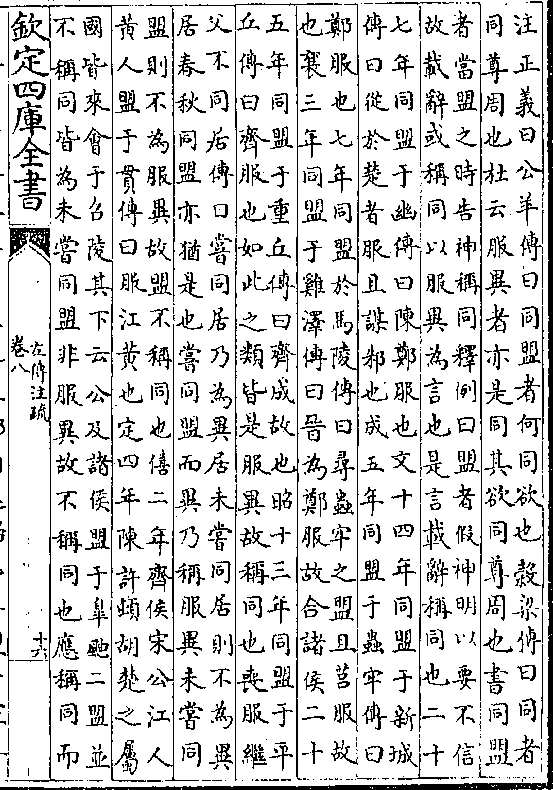 注正義曰公羊傳曰同盟者何同欲也榖梁傳曰同者
同尊周也杜云服異者亦是同其欲同尊周也書同盟
者當盟之時告神稱同釋例曰盟者假神明以要不信
故載辭或稱同以服異為言也是言載辭稱同也二十
七年同盟于幽傳曰陳鄭服也文十四年同盟于新城
傳曰從於楚者服且謀邾也成五年同盟于蟲牢傳曰
鄭服也七年同盟於馬陵傳曰尋蟲牢之盟且莒服故
也襄三年同盟于雞澤傳曰晉為鄭服故合諸侯二十
五年同盟于重丘傳曰齊成故也昭十三年同盟于平
丘傳曰齊服也如此之類皆是服異故稱同也喪服繼
父不同居傳曰嘗同居乃為異居未嘗同居則不為異
居春秋同盟亦猶是也嘗同盟而異乃稱服異未嘗同
盟則不為服異故盟不稱同也僖二年齊侯宋公江人
黄人盟于貫傳曰服江黄也定四年陳許頓胡楚之屬
國皆來會于召陵其下云公及諸侯盟于臯鼬二盟並
不稱同皆為未嘗同盟非服異故不稱同也應稱同而
欽定四庫全書
左傳注疏
卷八
十六